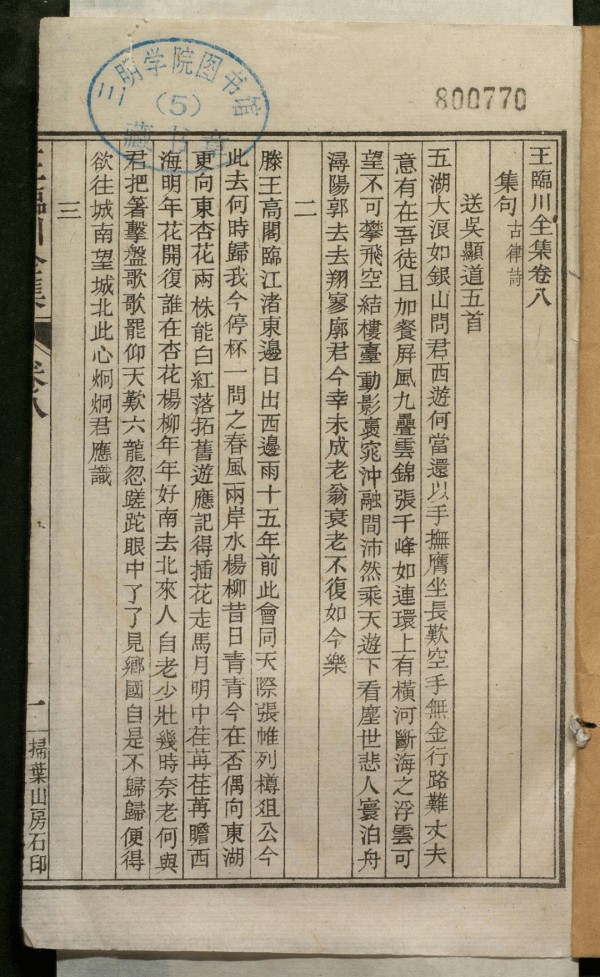 三明学院图书馆
(5)
藏书章
800770
王臨川全集卷八
集句古律詩
送吳顯道五首
五湖大浪如銀山問君西遊何當還以手撫膺坐長歎空手無金行路難丈夫
意有在吾徒且加餐屏風九疊雲錦張千峰如連環上有橫河斷海之浮雲可
望不可攀飛空結樓臺動影裛窕沖融間沛然乘天遊下看塵世悲人寰泊舟
潯陽郭去去翔寥廓君今幸未成老翁衰老不復如今樂
二
滕王高閣臨江渚東邊日出西邊雨十五年前此會同天際張帷列樽俎公今
此去何時歸我今停杯一問之春風兩岸水楊柳昔日青青今在否偶向東湖
更向東杏花兩株能白紅落拓舊遊應記得插花走馬月明中荏苒荏苒瞻西
海明年花開復誰在杏花楊柳年年好南去北來人自老少壯幾時奈老何與
君把箸擊盤歌歌罷仰天歎六龍忽蹉跎眼中了了見鄉國自是不歸歸便得
欲往城南望城北此心炯炯君應識
三
王臨川全集 卷八
一
掃葉山房石印